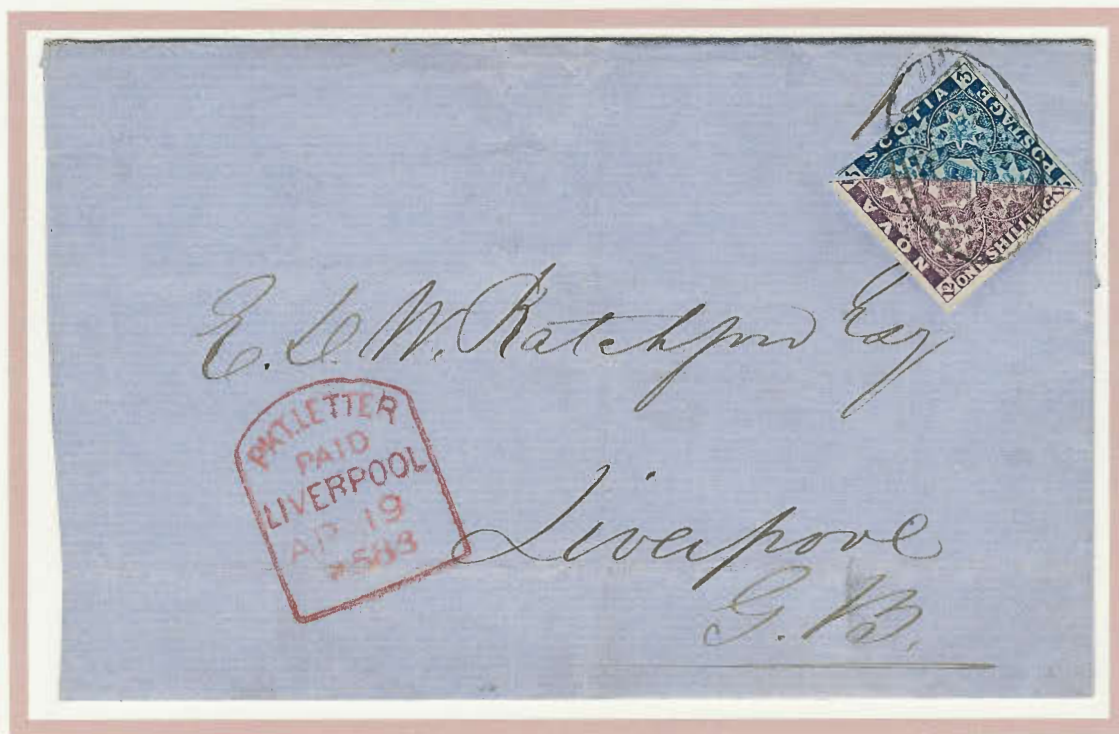 NOVA SCOTIA
3
POSTAGE
12 ONE SHILLING
E. D. W. Ratchford Esq
PKT. LETTER
PAID
LIVERPOOL
AP 19
Liverpool
G. B.